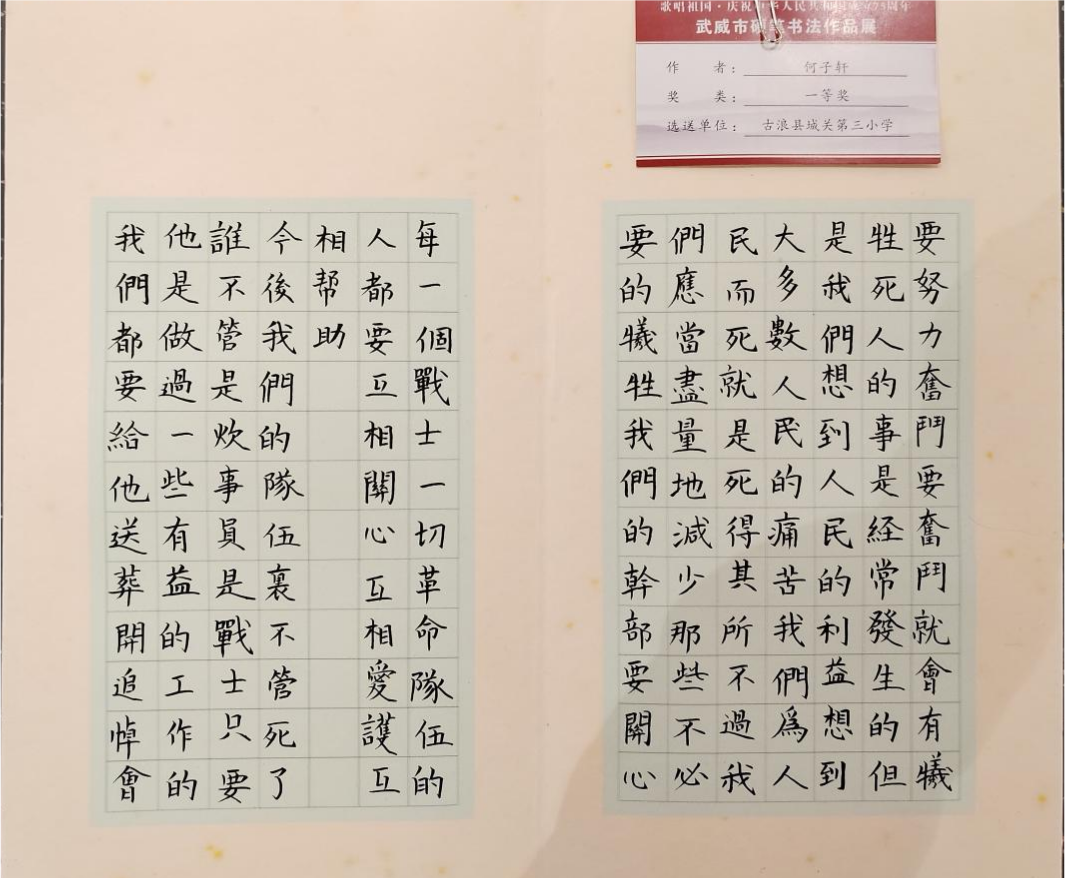 歌唱祖国·庆祝中华人民共和国成立75周年
武威市硬笔书法作品展
作者：何子轩
奖类：一等奖
选送单位：古浪县城关第三小学
要努力奮鬥要奮鬥就會有犧
牲死人的事是経常發生的但
是我們想到人民的利益想到
大多數人民的痛苦我們爲人
民而死就是死得其所不過我
們應當盡量地減少那些不必
要的犧牲我們的幹部要關心
每一個戰士一切革命隊伍的
人都要互相關心互相愛護互
相帮助
今後我們的隊伍裏不管死了
誰不管是炊事員是戰士只要
他是做過一些有益的工作的
我們都要給他送葬開追悼會